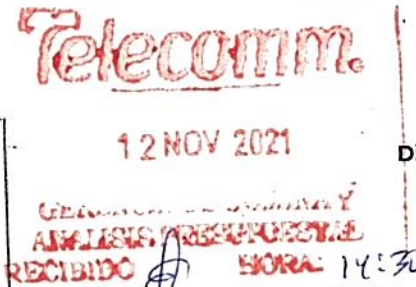 Telecomm.
12 NOV 2021
D
ANALISIS PRESUPUESTAL
RECIBIDO HORA: 14:30